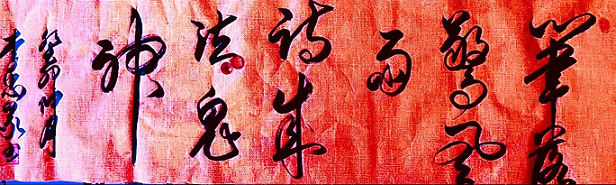 筆落
驚風
雨
詩成
泣鬼
神
癸卯